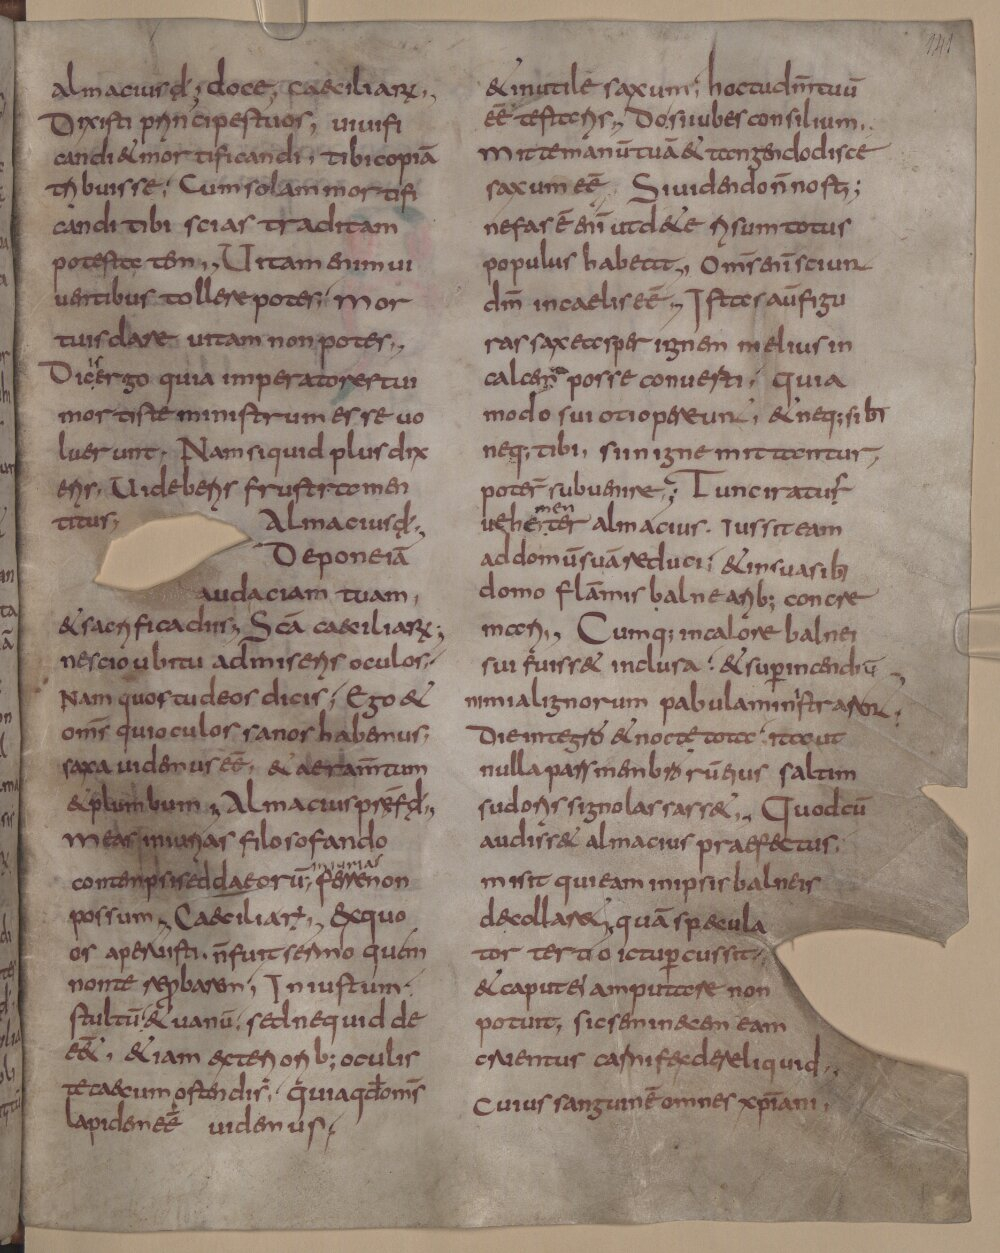 141
almacius d̄; doce, caeciliar̄,
Dixisti principes tuos, uiuifi
candi & mortificandi, tibi copiā
tribuisse; Cum solam mortifi
candi tibi scias traditam
potestatem, Uitam enim ui
uentibus tollere potes; mor
tuis dare uitam non potes,
Dicis ergo quia imperatores tui
mortis te ministrum esse uo
luerunt. Nam siquid plus dix
eris, Uideberis frustra men
titus, Almacius d̄;
Depone iā
audaciam tuam,
& sacrifica diis; Scā caeciliar̄;
nescio ubi tu admiseris oculos.
Nam quos tu deos dicis; Ego &
om̄s qui oculos sanos habemus,
saxa uidemus eē, & aeram̄tum
& plumbum; Almacius praef d̄,
meas iniurias filosofando
contempsi sed daeorū; iniurias ferre non
possum; Caeciliar̄, Exquo
os aperuisti, n̄ fuit sermo quem
non te reprobarem, Iniustum.
stultū & uanū, sed nequid de
eē&, & iam exteriorib; oculis
te caecum ostendis, quia qd̄ om̄s
lapidem eē uidemus,
& inutilē saxum; hoc tu dn̄m tuū
eē testeris, Do si iubes consilium,
mitte manū tuā & tangendo disce
saxum eē, Si uidendo n̄ nosti;
nefas ē eni ut de te risum totus
populus habeat, Om̄s eni sciunt
dm̄ in caelis eē, Istas aū figu
ras saxeas per ignem melius in
calcem posse conuerti; Quia
modo sui otio pereunt, & neq; sibi
neq; tibi, si in igne mittantur,
poter̄ subuenire; Tunc iratus
uehementer almacius. iussit eam
ad domū suā reduci; & in sua sibi
domo flam̄is balnearib; concre
mari, Cumq; in calore balnei
sui fuiss& inclusa; & super incendiū
nimia lignorum pabula ministrarent;
Die integro & nocte tota ita ut
nulla pars membrorū eius saltim
sudoris signo lassass&, Quod cū
audiss& almacius praefectus.
misit qui eam in ipsis balneis
decollaret, quā specula
tor tertio ictu percussit,
& caput ei amputare non
potuit, sic seminecem eam
cruentus carnifex dereliquid.
Cuius sanguinē omnes xp̄iani,